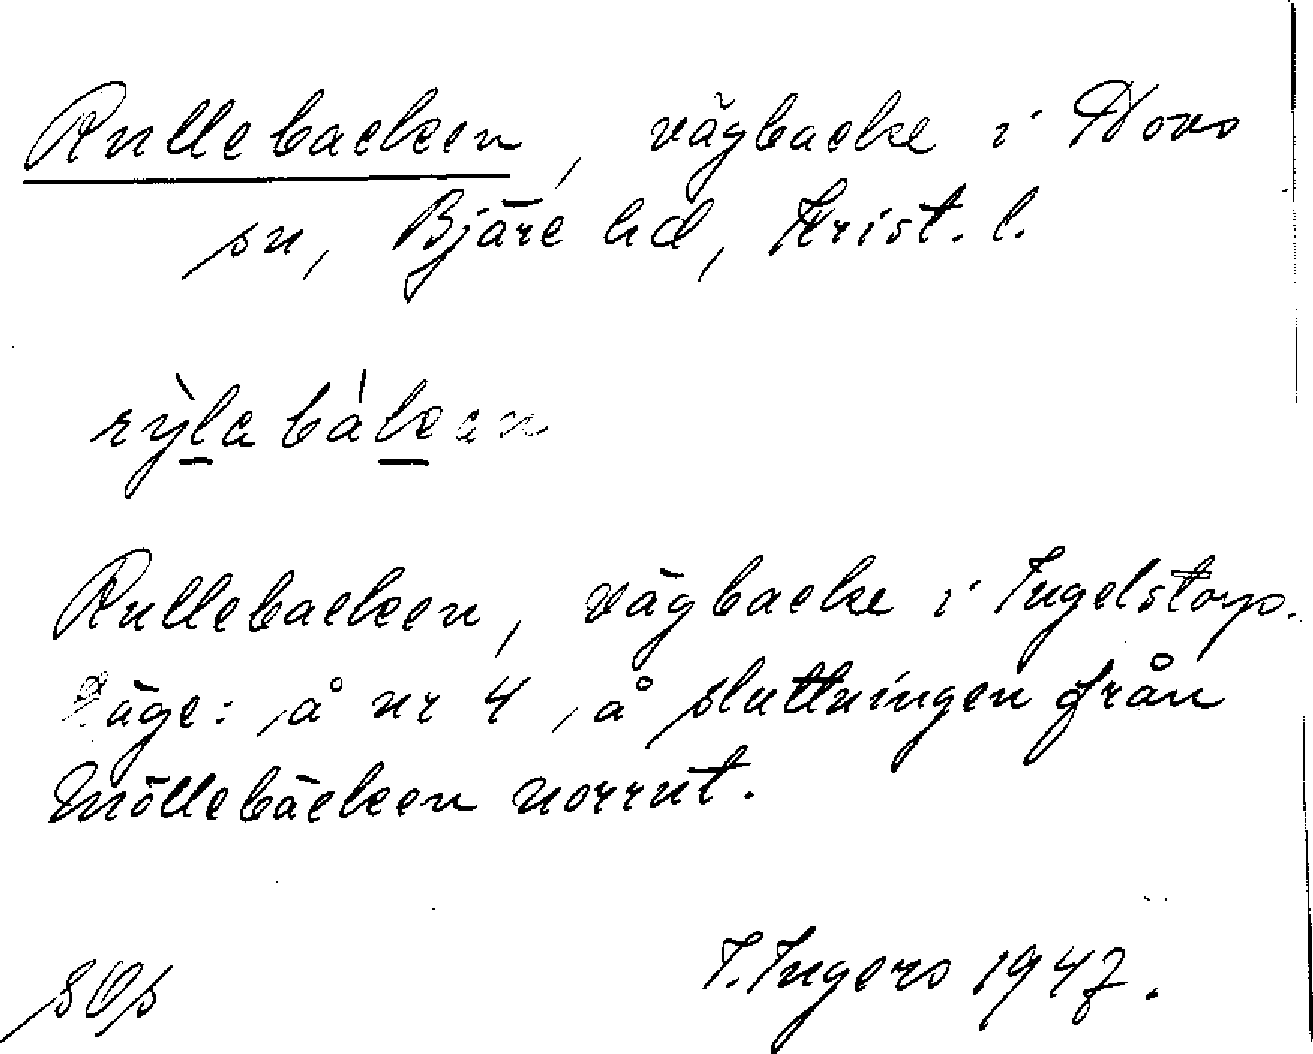 Rullebacken, vägbacke i Hovs
sn, Bjäre hd, Krist. l.
rỳlabákan
Rullebacken, vägbacke i Ingelstorp.
Läge: å nr 4, å sluttningen från
Möllebäcken norrut.
I. Ingers 1947.